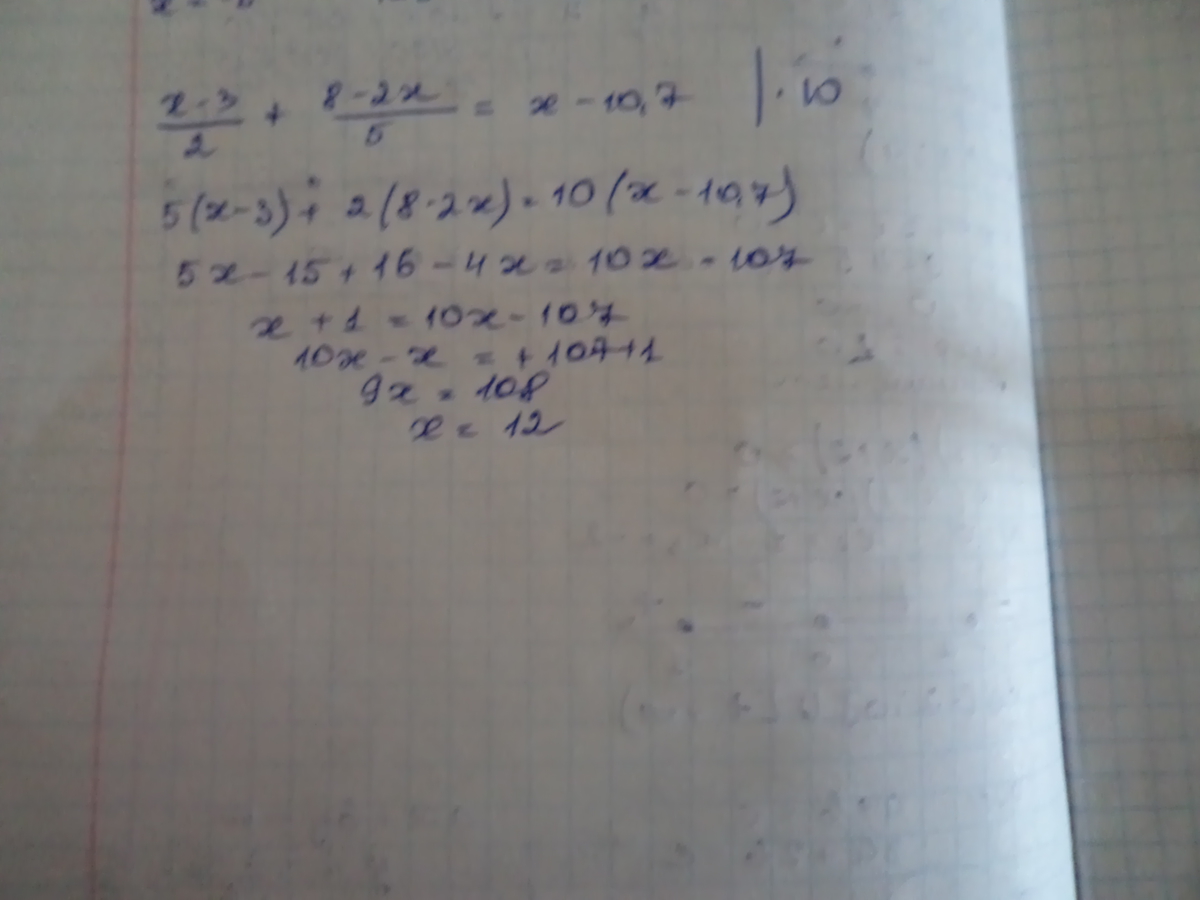 x-3/2 + 8-2x/5 = x-10,7 | · 10
5(x-3)+ 2(8-2x)=10(x-10,7)
5x-15+16-4x=10x-107
x+1=10x-107
10x-x=+107+1
9x=108
x=12